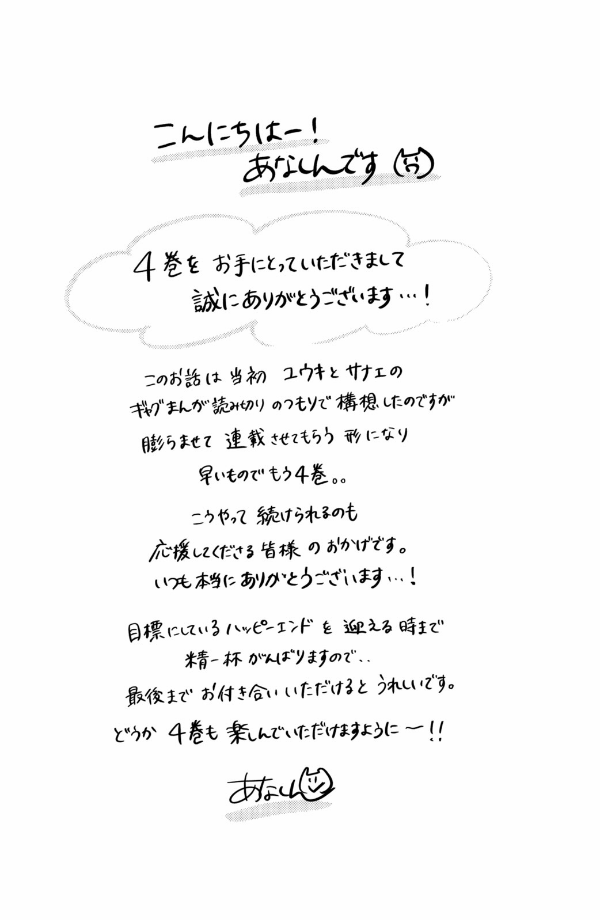 こんにちはー!
あなしんです
4巻を お手にとっていただきまして
誠にありがとうございます…!
このお話は 当初 ユウキと サナエの
ギャグまんが読み切り のつもりで 構想したのですが
膨らませて 連載させてもらう 形になり
早いもので もう4巻。。
こうやって 続けられるのも
応援してくださる 皆様 の おかげです。
いつも本当に ありがとうございます…!
目標にしている ハッピーエンド を 迎える 時まで
精一杯 がんばりますので‥
最後まで お付き合い いただけると うれしいです。
どうか 4巻も 楽しんでいただけますように〜!!
あなしん